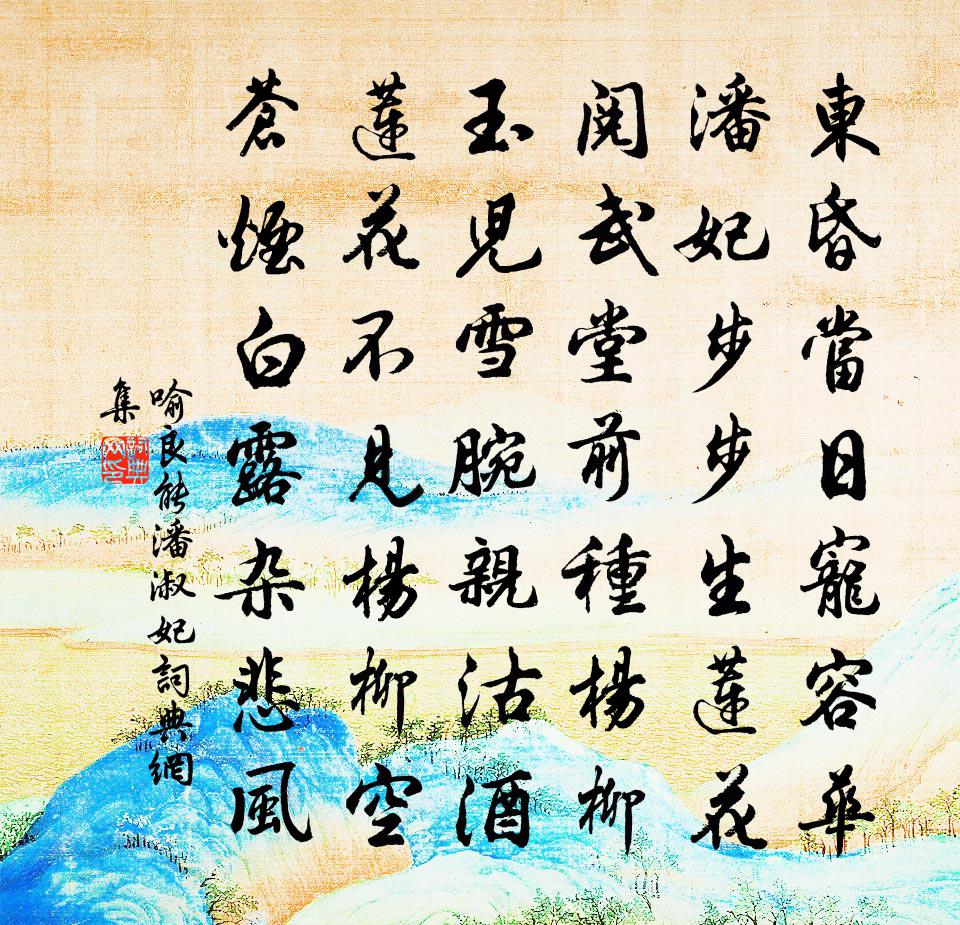 東昏當日寵容華
潘妃步步生蓮花
閱武堂前種楊柳
玉兒雪腕親沽酒
蓮花不見楊柳空
蒼煙白露杂悲風
喻良能潘淑妃詞典網
集